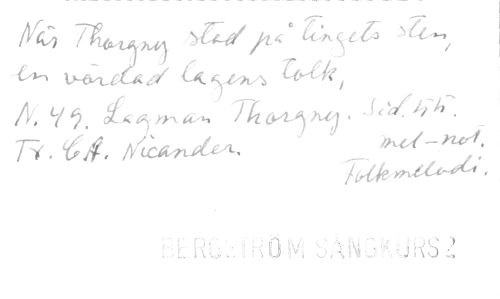 När Thorgny stod på tingets sten,
en vördad lagens tolk,
N. 49. Lagman Thorgny. Sid. 44.
Tr. C.A. Nicander. mel-not.
Folkmelodi.
BERGSTRÖM SÅNGKURS 2